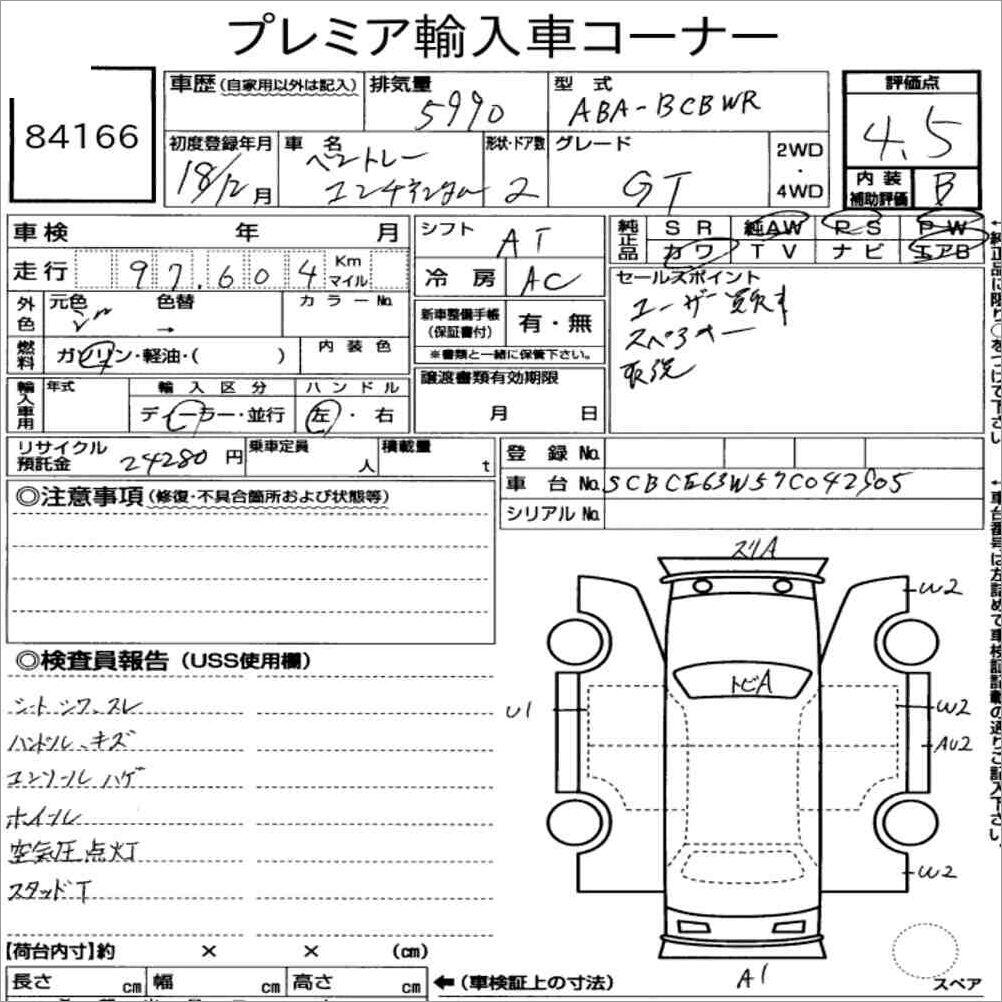 プレミア輸入車コーナー
84166
車歴 (自家用以外は記入) 排気量 5990 型式 ABA-BCBWR
評価点 4.5
初度登録年月 18/12月 車名 ベントレー 形状・ドア数 2 グレード GT 2WD・4WD
内装補助評価 B
車検 年 月
シフト AT
純正品 SR 純AW PS PW
カワ TV ナビ エアB
走行 97,604 Km マイル
冷房 AC
外色 元色 色替 → カラーNo.
新車整備手帳 (保証書付) 有・無
※書類と一緒に保管下さい。
セールスポイント
ユーザー買取車
スペアキー
取説
燃料 ガソリン・軽油・( ) 内装色
譲渡書類有効期限
月 日
輸入車用 年式 輸入区分 ハンドル
ディーラー・並行 左・右
リサイクル預託金 24280円 乗車定員 人 積載量 t
登録No.
車台No. SCBCE63W57C042905
シリアルNo.
◎注意事項(修復・不具合箇所および状態等)
◎検査員報告(USS使用欄)
シートシワ、スレ
ハンドル、キズ
コンソールハゲ
ホイール
空気圧点灯
スタッドT
スリA
W2
トビA
U1
W2
AU2
W2
A1
スペア
【荷台内寸】約 × × (cm)
長さ cm 幅 cm 高さ cm ←(車検証上の寸法)
←純正品に限り○をつけて下さい
←車台番号は左詰めで車検証記載の通りご記入下さい。